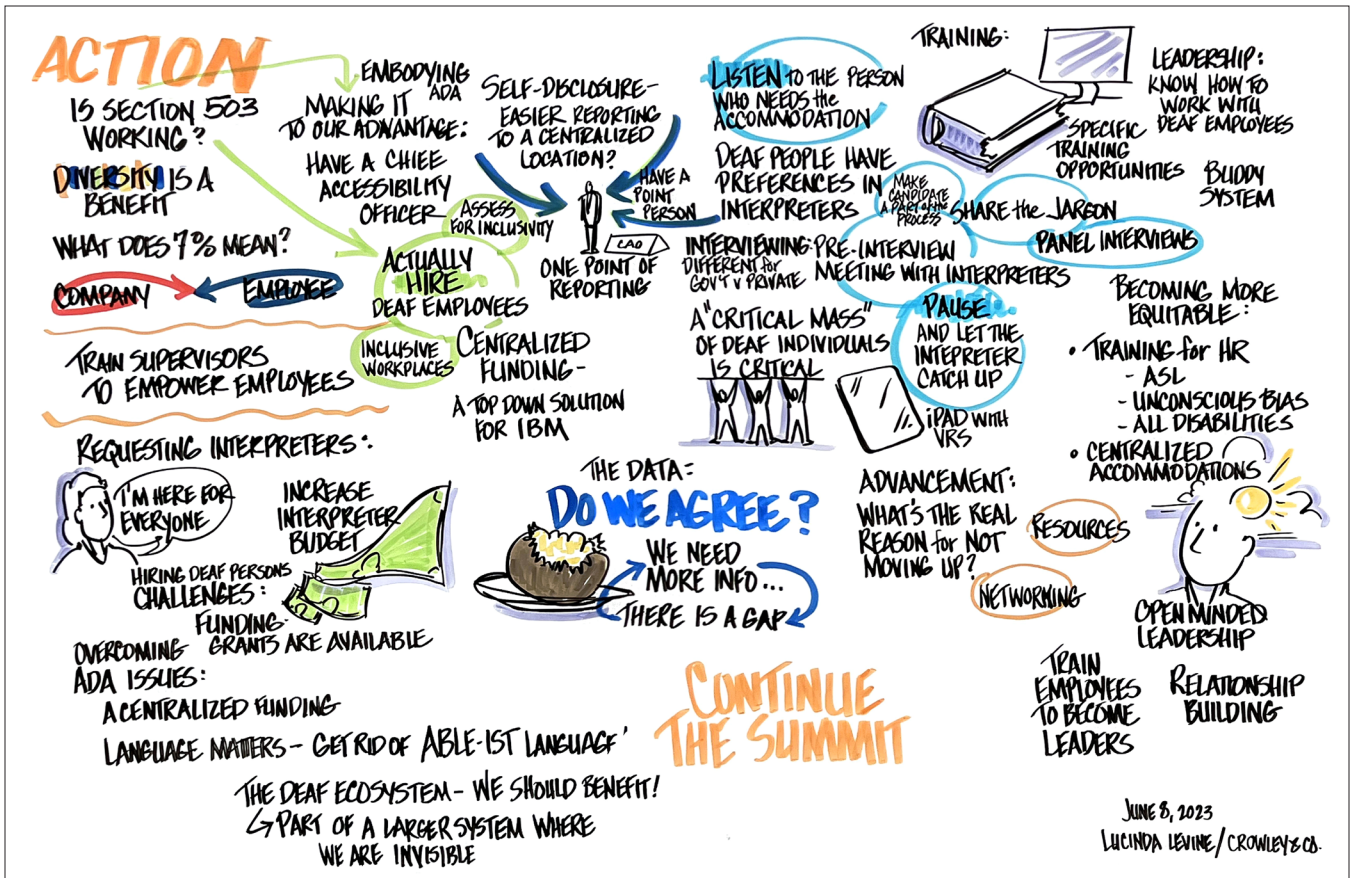 ACTION
IS SECTION 503
WORKING?
DIVERSITY IS A
BENEFIT
WHAT DOES 7% MEAN?
COMPANY
EMPLOYEE
TRAIN SUPERVISORS
TO EMPOWER EMPLOYEES
EMBODYING
ADA
MAKING IT
TO OUR ADVANTAGE:
HAVE A CHIEF
ACCESSIBILITY
OFFICER
ASSESS
FOR INCLUSIVITY
ACTUALLY
HIRE
DEAF EMPLOYEES
INCLUSIVE
WORKPLACES
SELF-DISCLOSURE-
EASIER REPORTING
TO A CENTRALIZED
LOCATION?
HAVE A
POINT
PERSON
CAO
ONE POINT OF
REPORTING
CENTRALIZED
FUNDING-
A TOP DOWN SOLUTION
FOR IBM
LISTEN TO THE PERSON
WHO NEEDS the
ACCOMMODATION
DEAF PEOPLE HAVE
PREFERENCES IN
INTERPRETERS
MAKE
CANDIDATE
A PART of the
PROCESS
SHARE the JARGON
PANEL INTERVIEWS
INTERVIEWING:
DIFFERENT for
GOV'T v PRIVATE
PRE-INTERVIEW
MEETING WITH INTERPRETERS
A "CRITICAL MASS"
OF DEAF INDIVIDUALS
IS CRITICAL
PAUSE
AND LET THE
INTEPRETER
CATCH UP
iPAD WITH
VRS
TRAINING:
SPECIFIC
TRAINING
OPPORTUNITIES
LEADERSHIP:
KNOW HOW TO
WORK WITH
DEAF EMPLOYEES
BUDDY
SYSTEM
BECOMING MORE
EQUITABLE:
• TRAINING for HR
- ASL
- UNCONSCIOUS BIAS
- ALL DISABILITIES
• CENTRALIZED
ACCOMMODATIONS
REQUESTING INTERPRETERS:
I'M HERE FOR
EVERYONE
INCREASE
INTERPRETER
BUDGET
HIRING DEAF PERSONS
CHALLENGES:
FUNDING-
GRANTS ARE AVAILABLE
OVERCOMING
ADA ISSUES:
A CENTRALIZED FUNDING
LANGUAGE MATTERS - GET RID OF ABLE-IST LANGUAGE'
THE DEAF ECOSYSTEM - WE SHOULD BENEFIT!
↳ PART OF A LARGER SYSTEM WHERE
WE ARE INVISIBLE
THE DATA:
DO WE AGREE?
WE NEED
MORE INFO...
THERE IS A GAP
CONTINUE
THE SUMMIT
ADVANCEMENT:
WHAT'S THE REAL
REASON for NOT
MOVING UP?
RESOURCES
NETWORKING
OPEN MINDED
LEADERSHIP
TRAIN
EMPLOYEES
TO BECOME
LEADERS
RELATIONSHIP
BUILDING
JUNE 8, 2023
LUCINDA LEVINE/CROWLEY & CO.